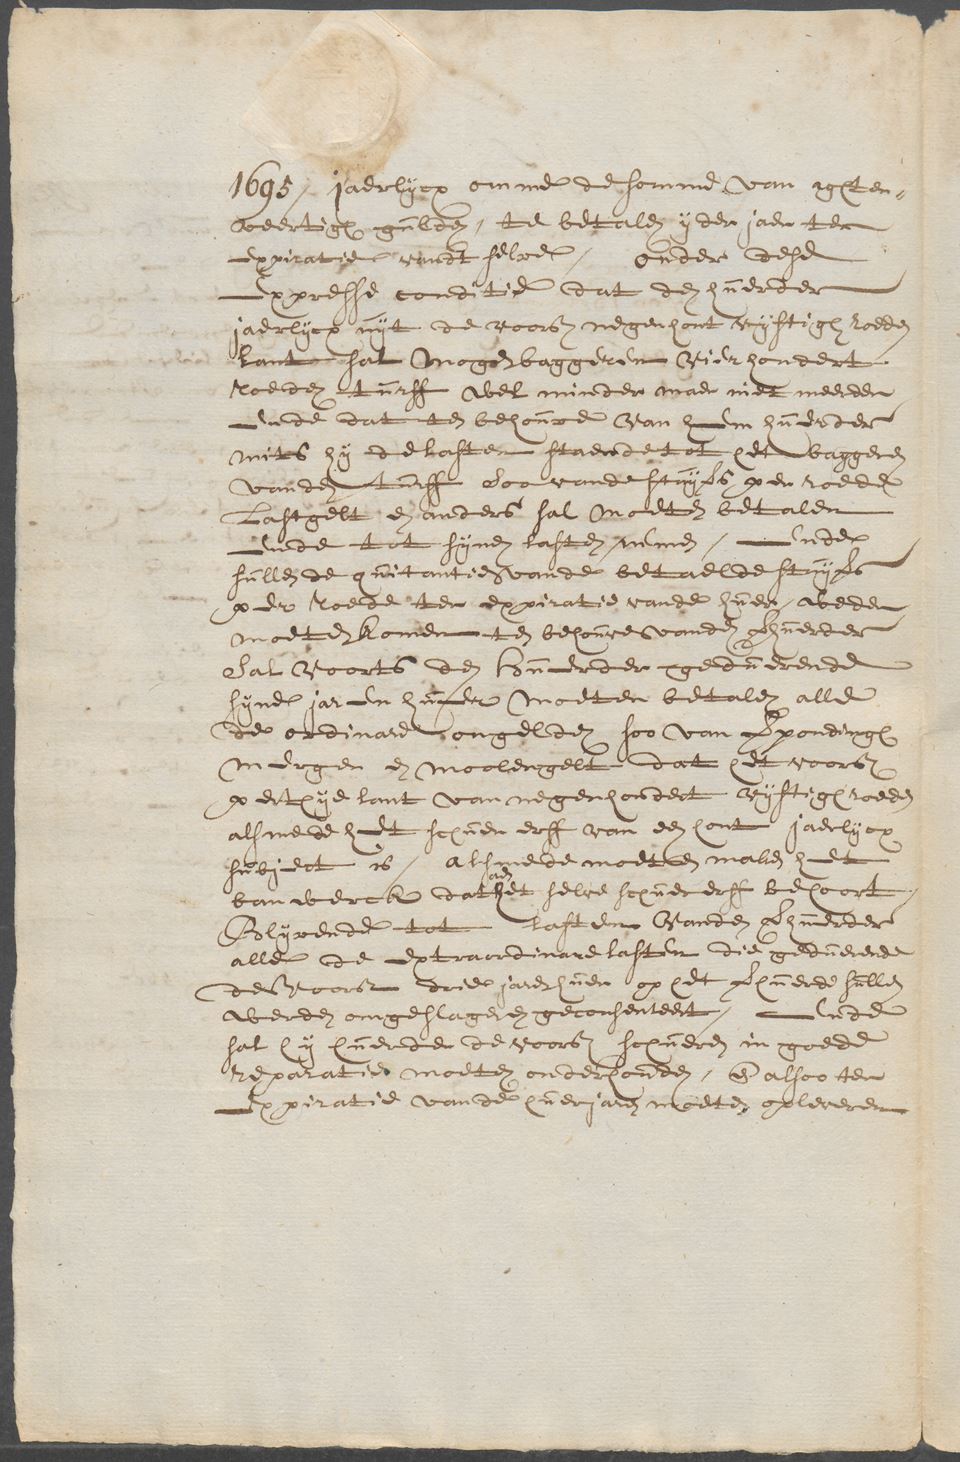 1695, jaerlycx omme de somme van agten-
veertigh gulden, te betalen yder jaer ter
expiratie vandt selve, Onder dese
Expresse conditie dat den huerder
jaerlycx uyt de voorsz negenhont vyftigh roeden
lant sal mogen baggeren vierhondert
roeden turff wel minder maer niet meerder
Ende dat ten behouve van hem huerder
mits hy de lasten staende tot het baggeren
vanden turff soo vande stuyvers per roede
Lastgelt en anders sal moeten betalen
Ende tot synen lasten nemen, Ende
sullen de quitantie vande betaelde stuyvers
per roede ter expiratie vande huer, weder
moeten komen ten behouve vanden Verhuerder
Sal voorts den huerder geduerende
syne jaeren huer moeten betalen alle
de ordinare ongelden soo van Verpondingh
mergen en moolengelt dat het voorsz
pertye lant van negenhondert vyftigh roeden
alsmede het schuer erff van een hont jaerlycx
subject is, alsmede moeten maken het
banwerck dat aen het selve schuer erff behoort,
Blyvende tot lasten vanden Verhuerder
alle de extraordinare lasten die geduerende
de voorsz drie jaren huer op het verhuerde sullen
werden omgeslagen en geconsenteert, Ende
sal hy huerder de voorsz schueren in goede
reparatie moeten onderhouden, & alsoo ter
Expiratie vande huerjaren moeten opleveren